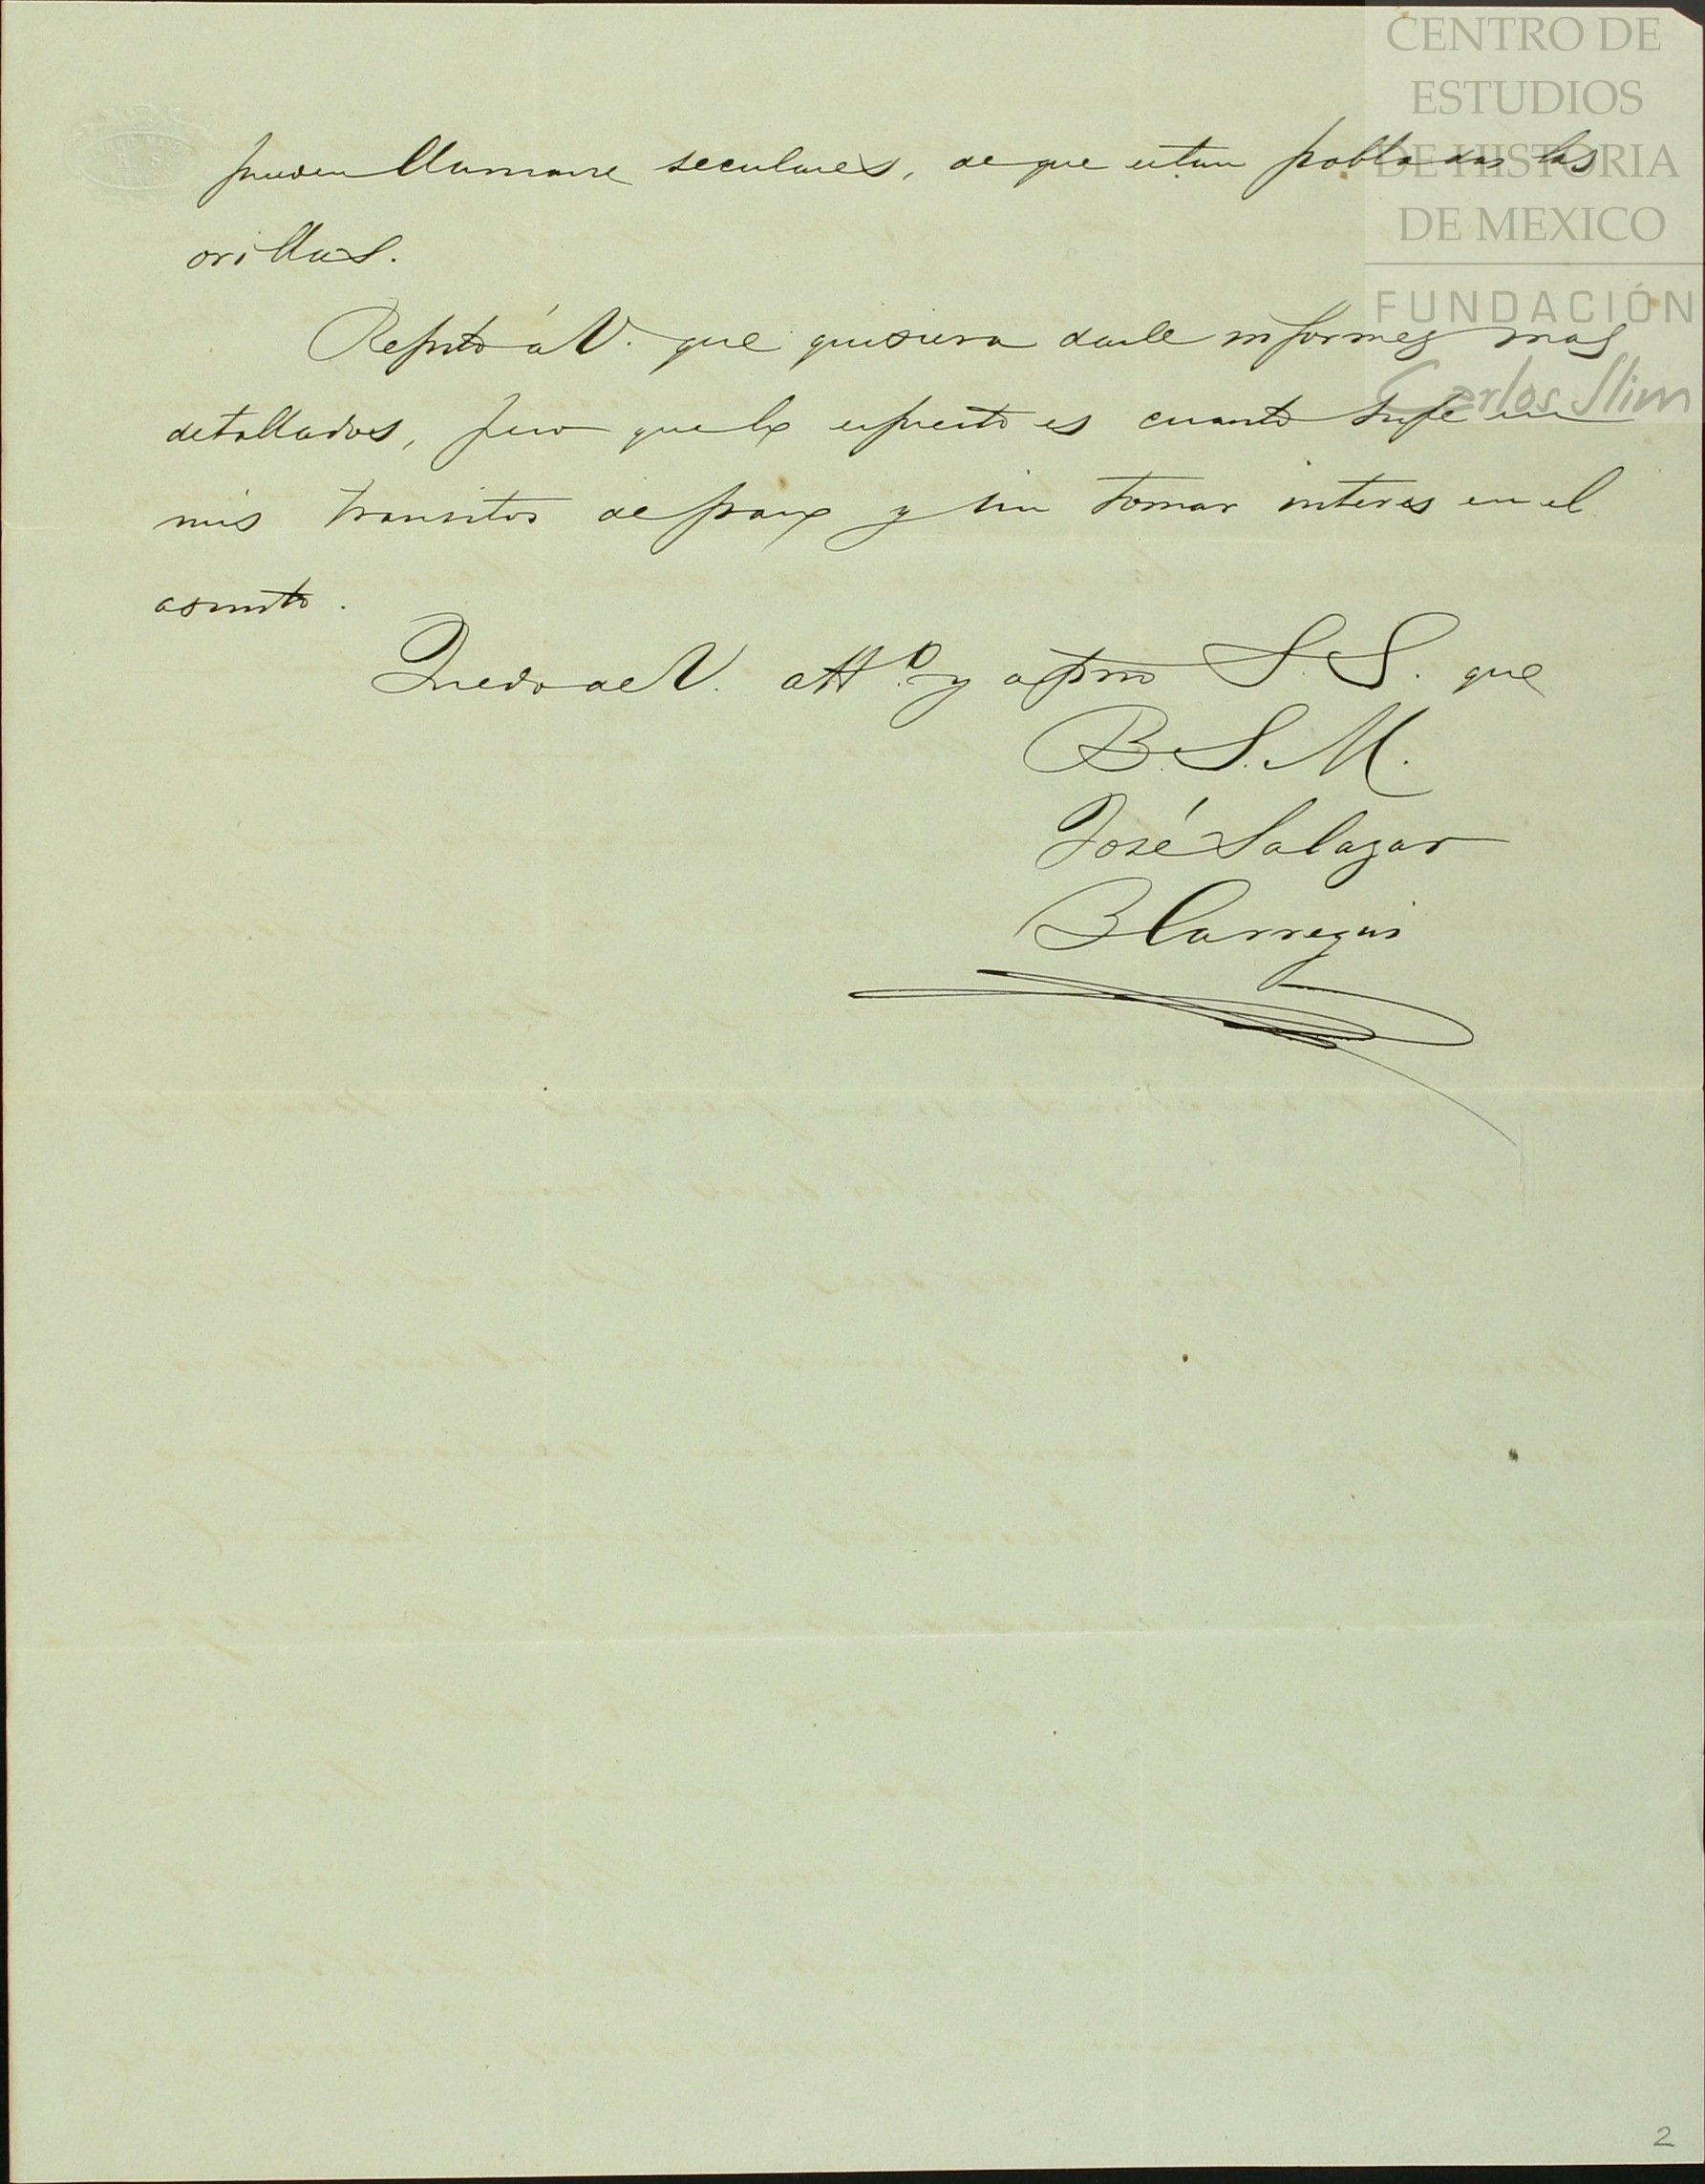 CENTRO DE
ESTUDIOS
DE HISTORIA
DE MEXICO
FUNDACIÓN
Carlos Slim
pueden llamarse seculares, de que estan pobladas las
orillas.
Repito á V. que quisiera darle informes mas
detallados, pero que lo espuesto es cuanto supe en
mis transitos de paso y sin tomar interes en el
asunto.
Quedo de V. att.o y afmo S.S. que
B.S.M.
José Salazar
Ylarregui
2